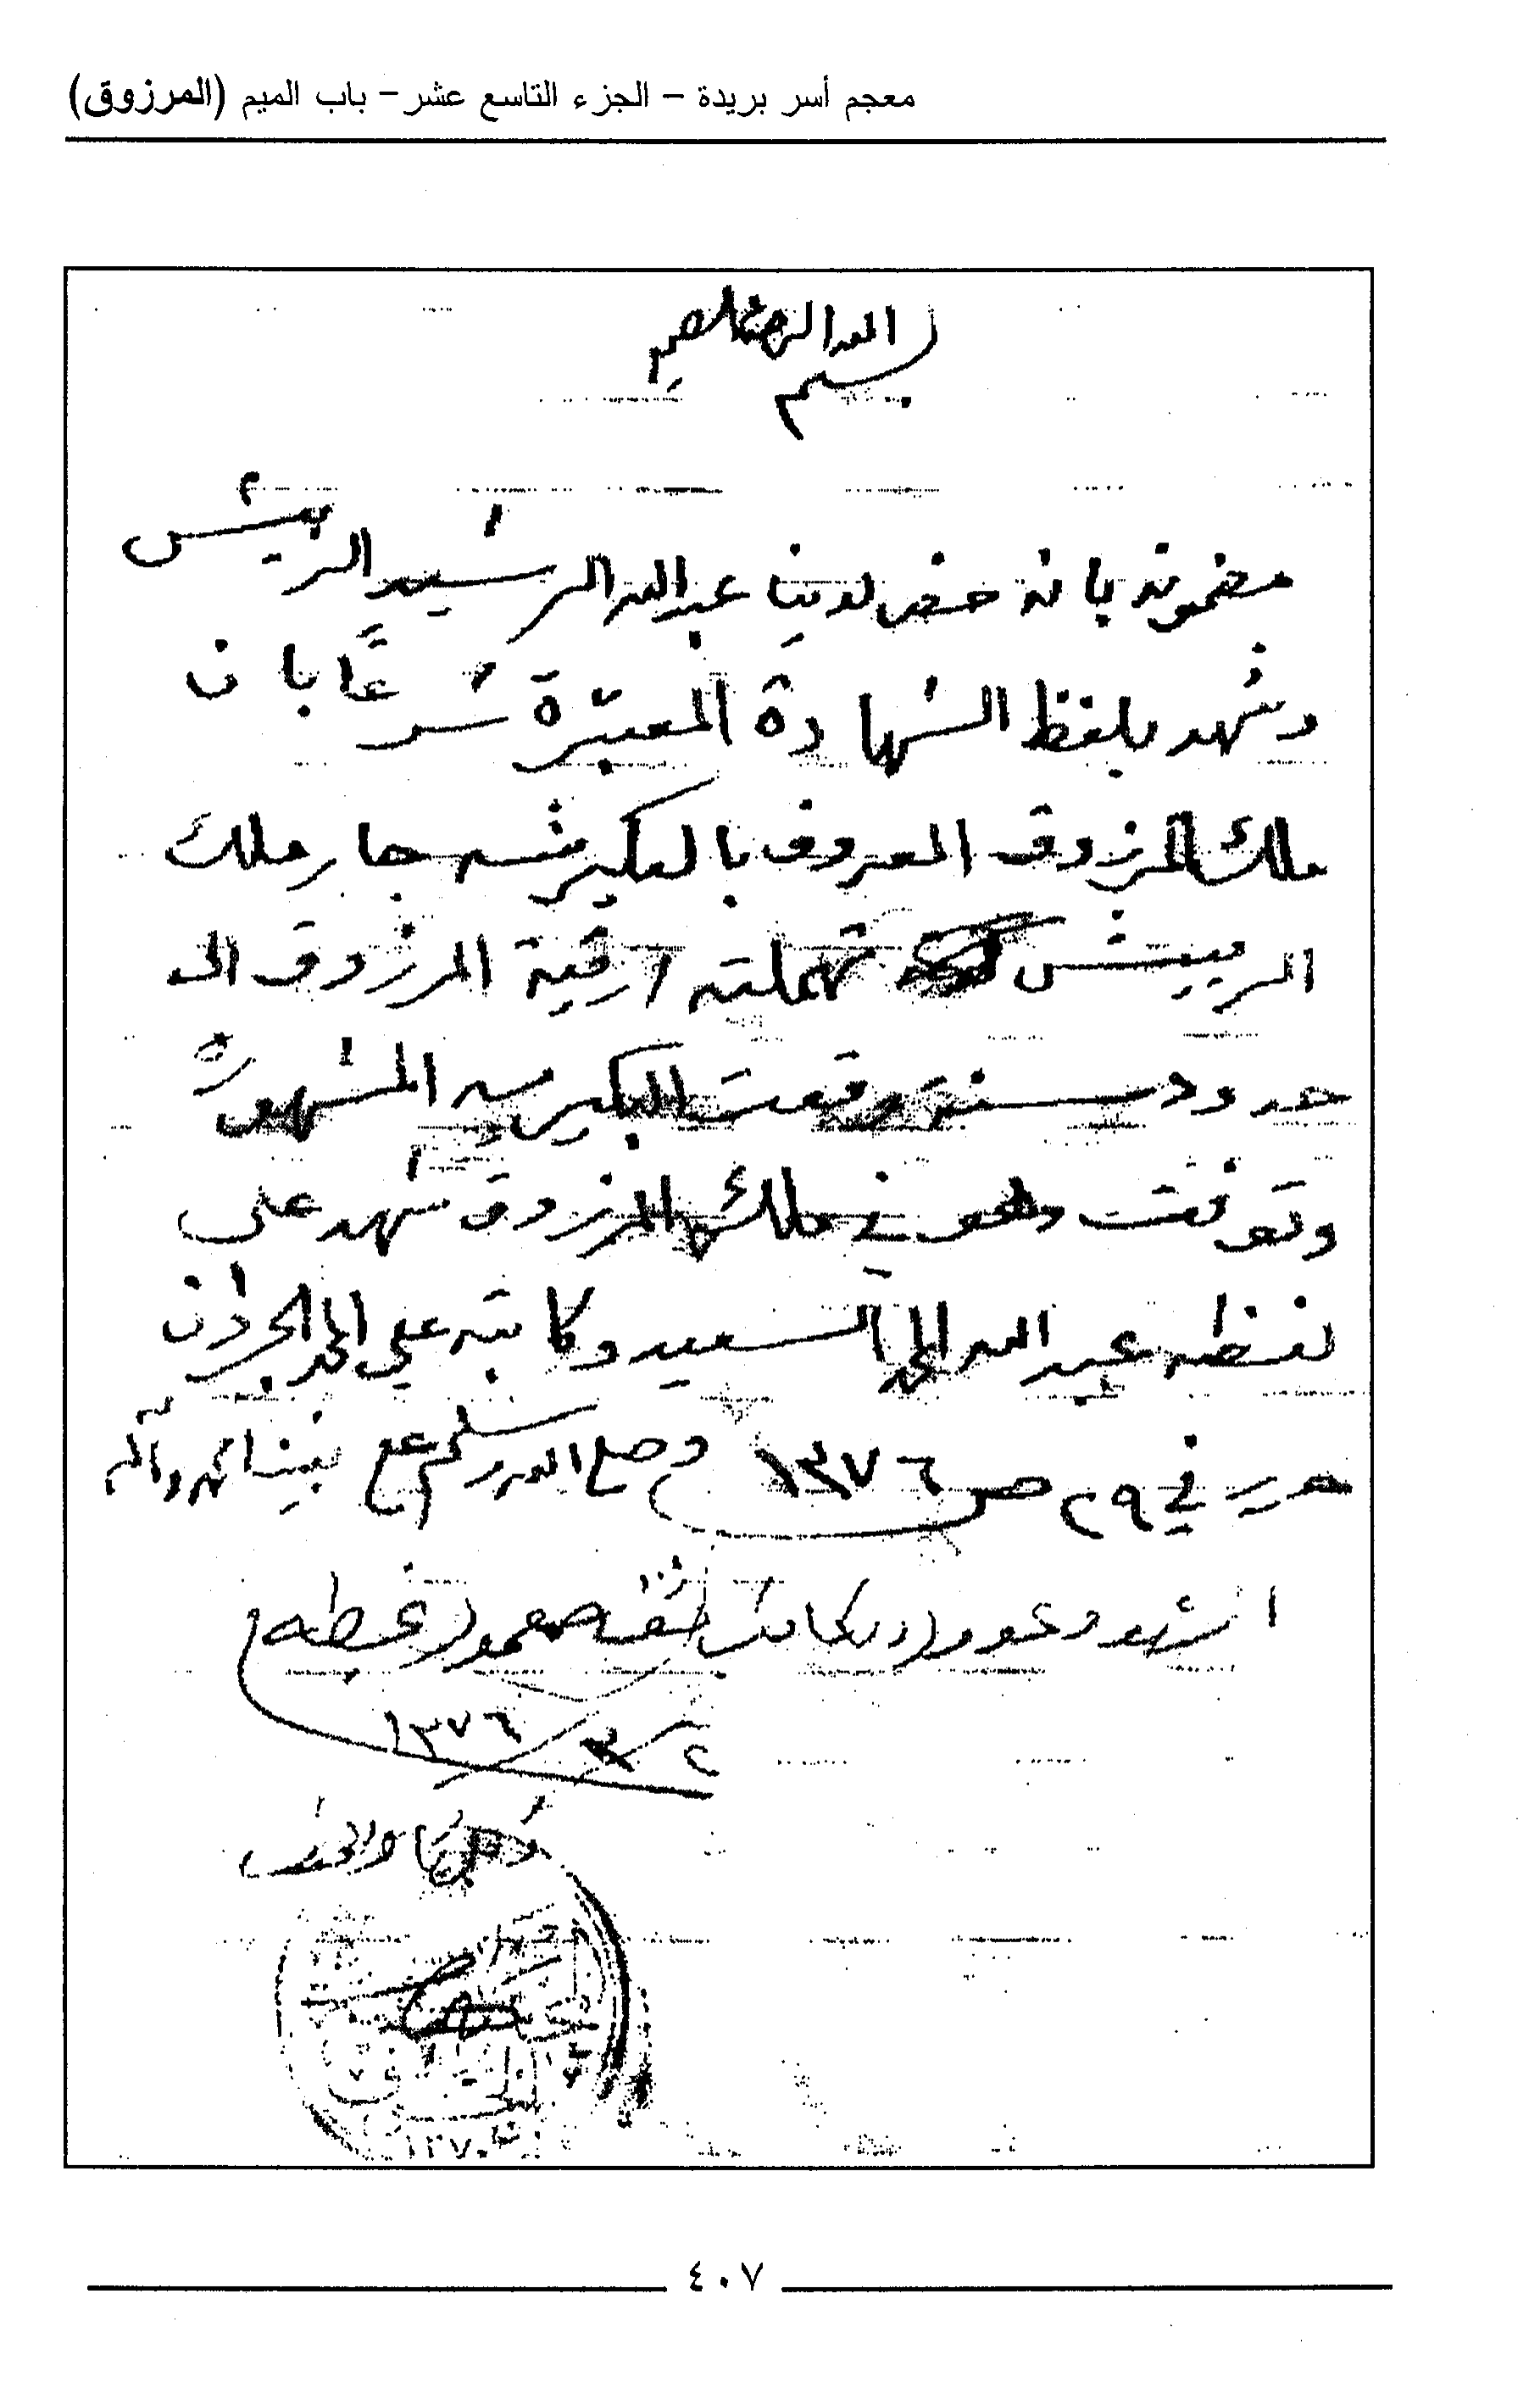 معجم أسر بريدة – الجزء التاسع عشر – باب الميم (المرزوق)
بسم الله الرحمن الرحيم
مضمونه بانه حضر لدينا عبدالله الرشيد الربيش
وشهد بلفظ الشهادة المعتبرة شرعاً بان
ملك المرزوق المعروف بالبكيريه جار ملك
الربيش تهملته رقية المرزوق الى
حدود سنة وقعت البكيريه المشهوره
وتوفت وهو في ملك المرزوق شهد على
لفظه عبد الله المحمد السعيد وكاتبه علي الحمد الجردان
حرر في ٢٩ ص ١٣٧٦ وصلى الله وسلم على نبينا محمد وآله
الكاتب ثقة معمول بخطه
٢/٣/١٣٧٦
١٣٧٠
٤٠٧